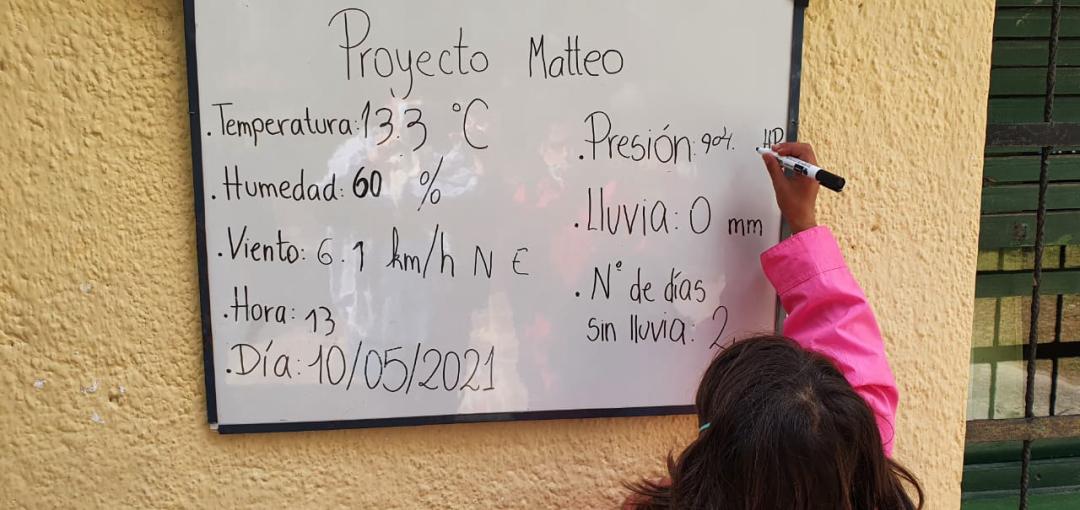 Proyecto Matteo
.Temperatura: 13.3 °C
.Humedad: 60 %
.Viento: 6.1 km/h N E
.Hora: 13
.Día: 10/05/2021
.Presión: 904. HP
.Lluvia: 0 mm
.N° de días
sin lluvia: 2